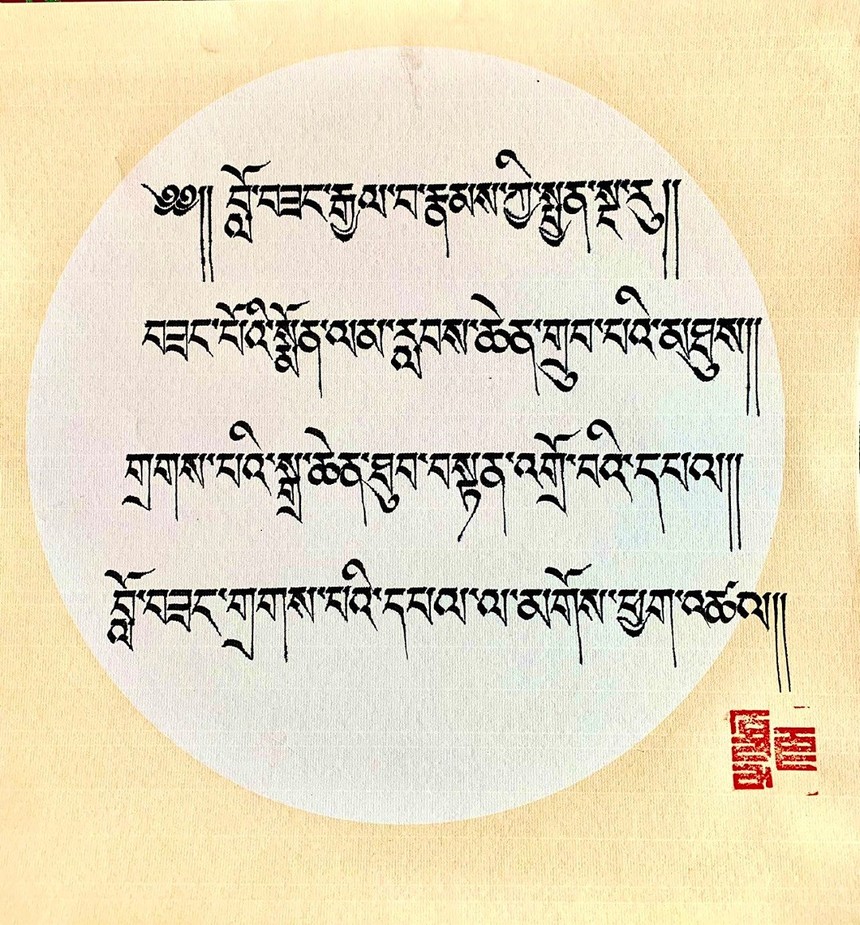 ༄༅།། བློ་བཟང་རྒྱལ་བ་རྣམས་ཀྱི་སྤྱན་སྔ་རུ།།
བཟང་པོའི་སྨོན་ལམ་རླབས་ཆེན་གྲུབ་པའི་མཐུས།།
གྲགས་པའི་སྒྲ་ཆེན་ཐུབ་བསྟན་འགྲོ་བའི་དཔལ།།
བློ་བཟང་གྲགས་པའི་དཔལ་ལ་མགོས་ཕྱག་འཚལ།།